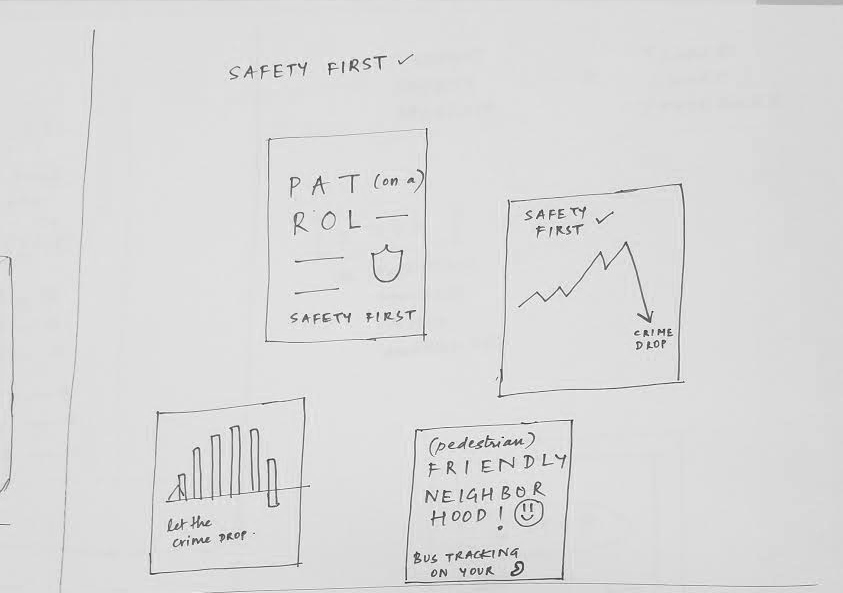 SAFETY FIRST ✓
PAT (on a)
ROL —
SAFETY FIRST
SAFETY ✓
FIRST
CRIME
DROP
let the
crime DROP.
(pedestrian)
FRIENDLY
NEIGHBOR
HOOD!
BUS TRACKING
ON YOUR